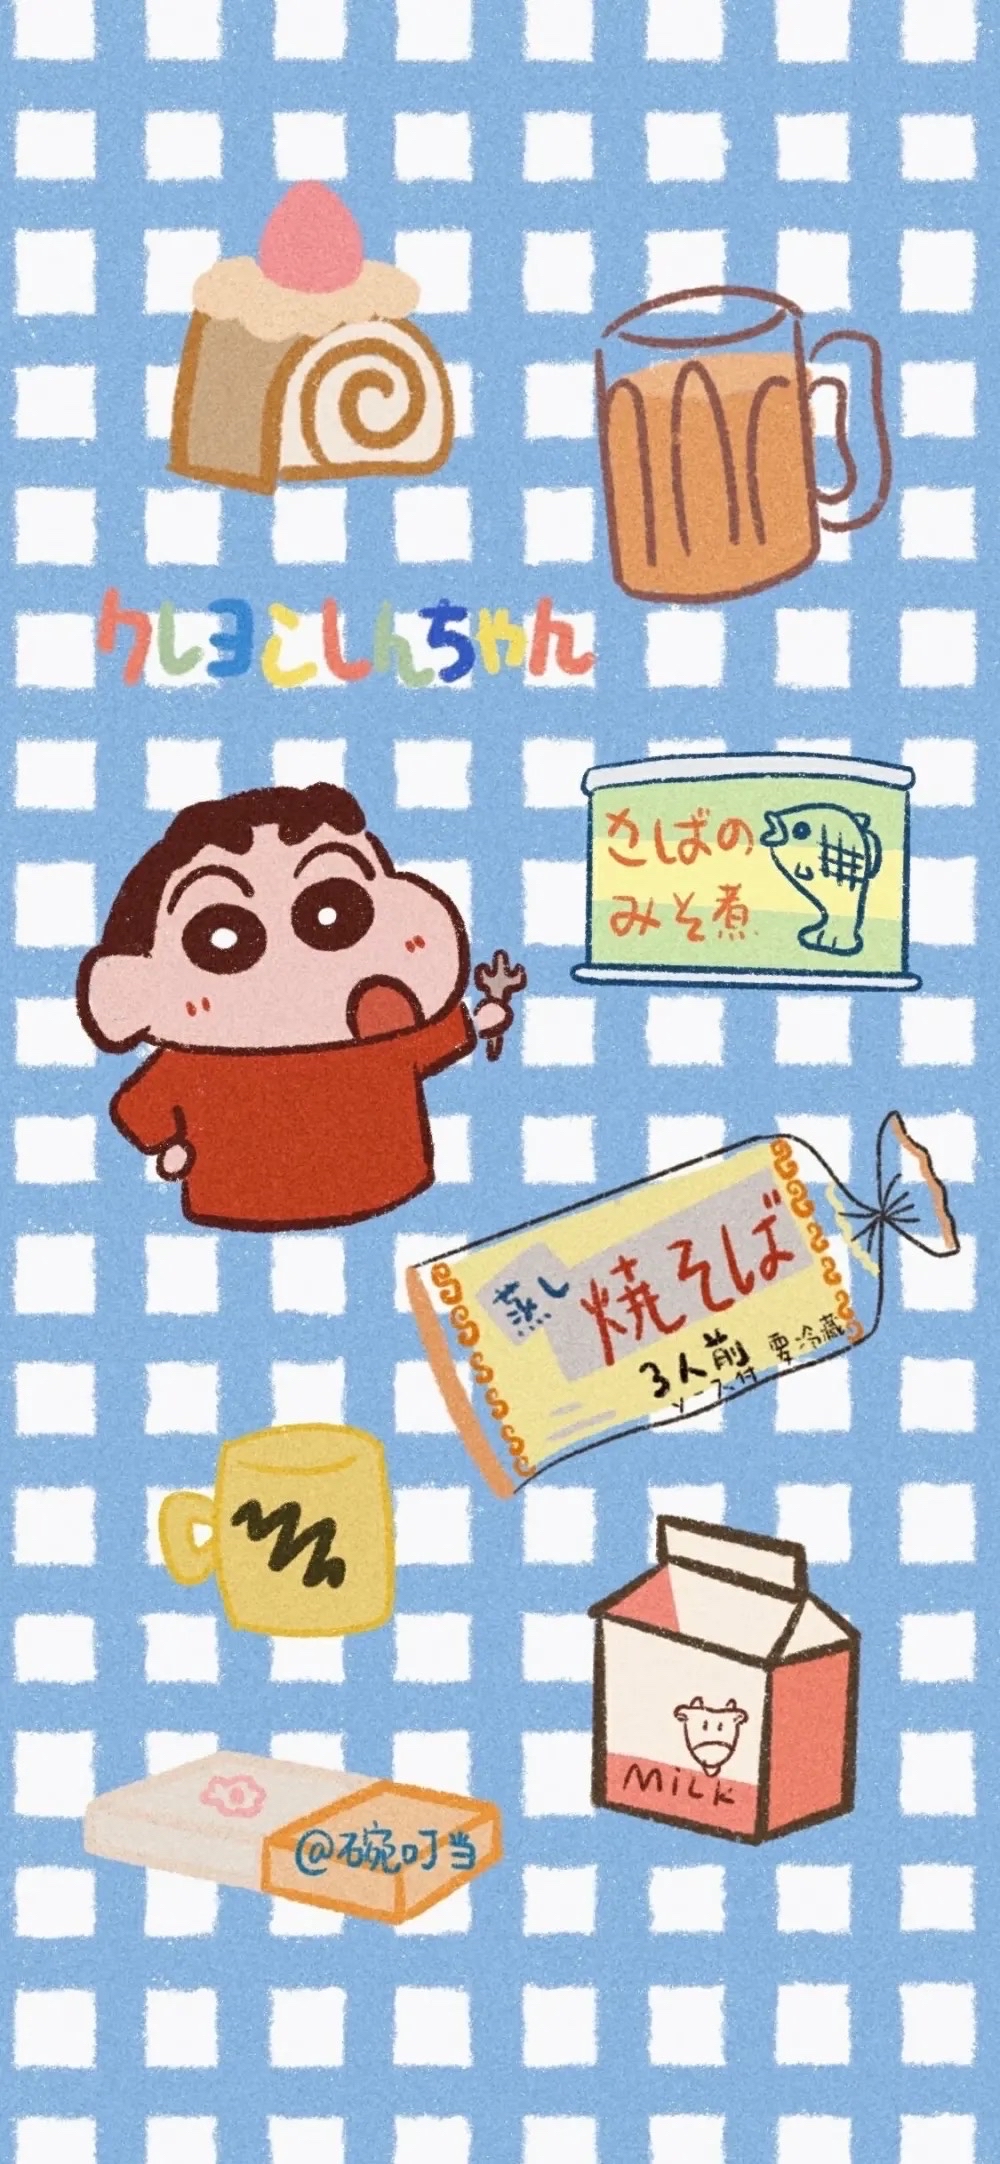 クレヨンしんちゃん
さばの
みそ煮
蒸し
焼そば
3人前
要冷蔵
ソース付
MiLK
@碗叮当